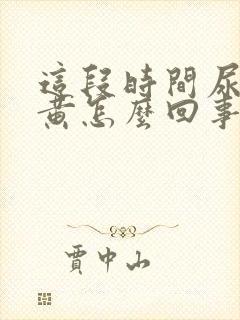 這段時間尿
黄怎麼回事
賈中山